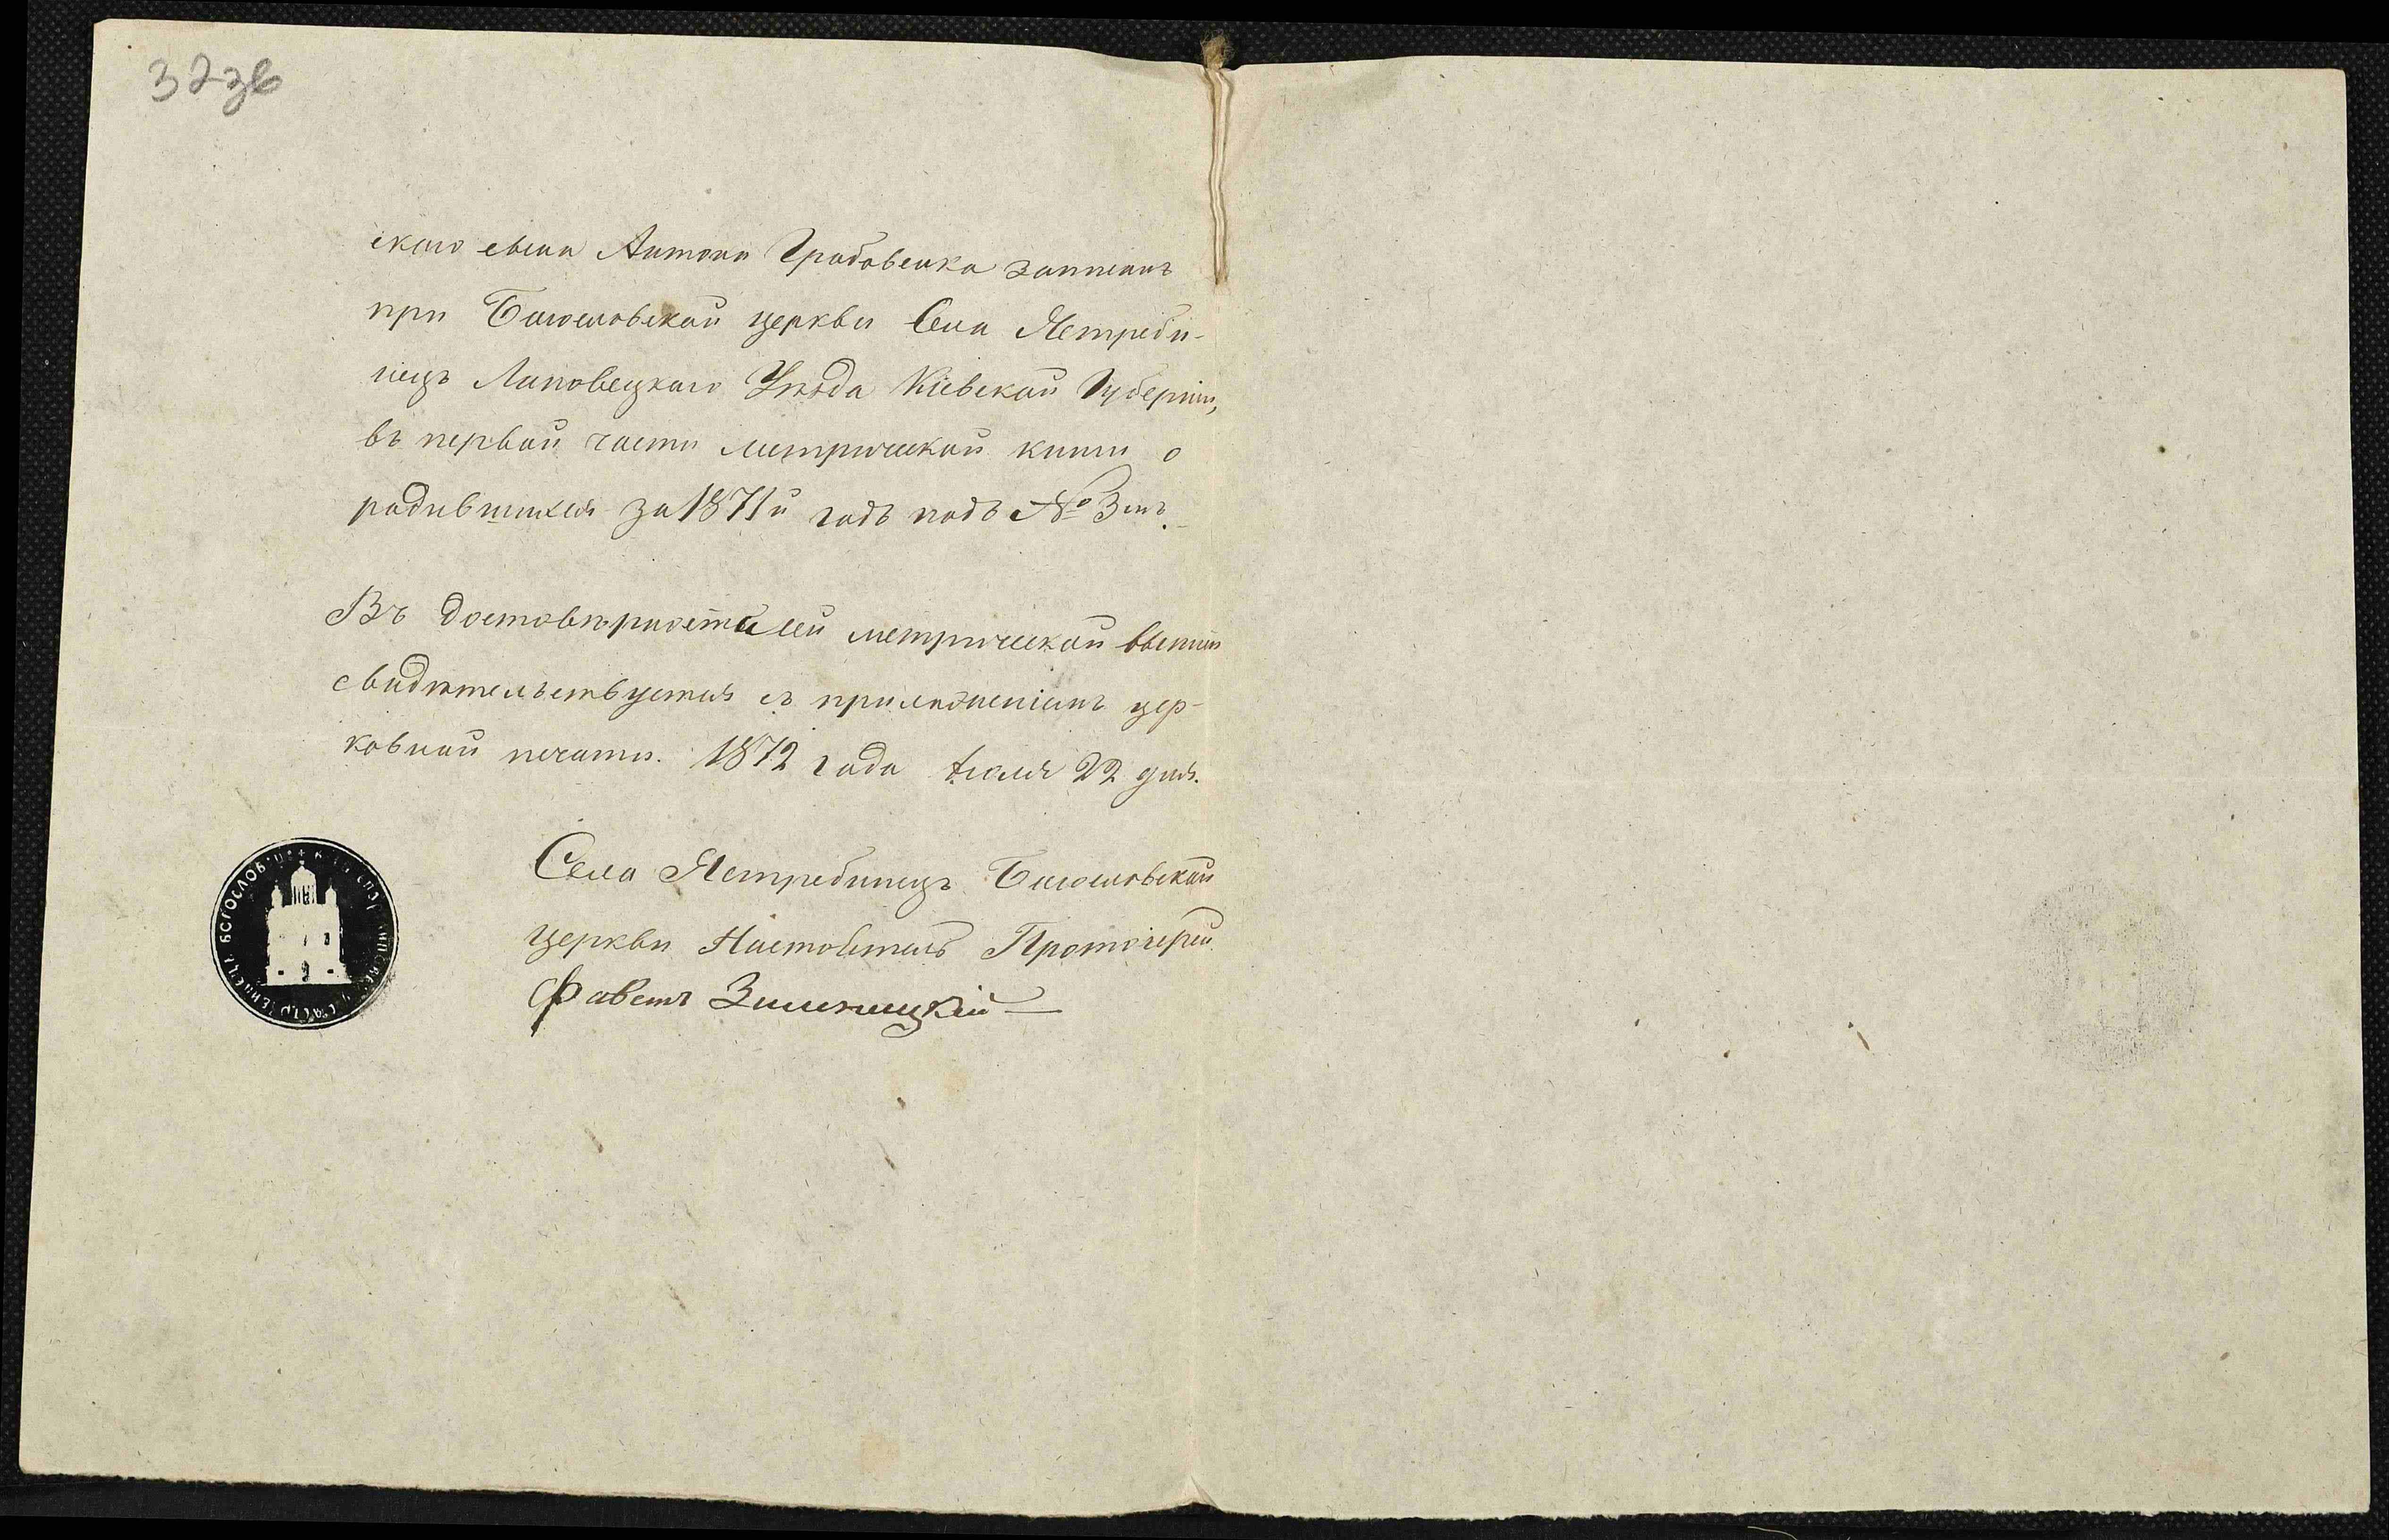 37 зв
скаго сына Антона Грабовенка записанъ
при Богословской церкви Села Ястреби-
нецъ Липовецкаго Уѣзда Кіевской Губерніи,
въ первой части метрической книги о
родившихся за 1871й годъ подъ № 3мъ.
Въ достовѣрности сей метрической выписи
свидѣтельствуется съ приложеніемъ цер-
ковной печати. 1872 года Іюля 22 дня.
Села Ястребинецъ Богословской
церкви Настоятель Протоіерей
БОГОСЛОВ